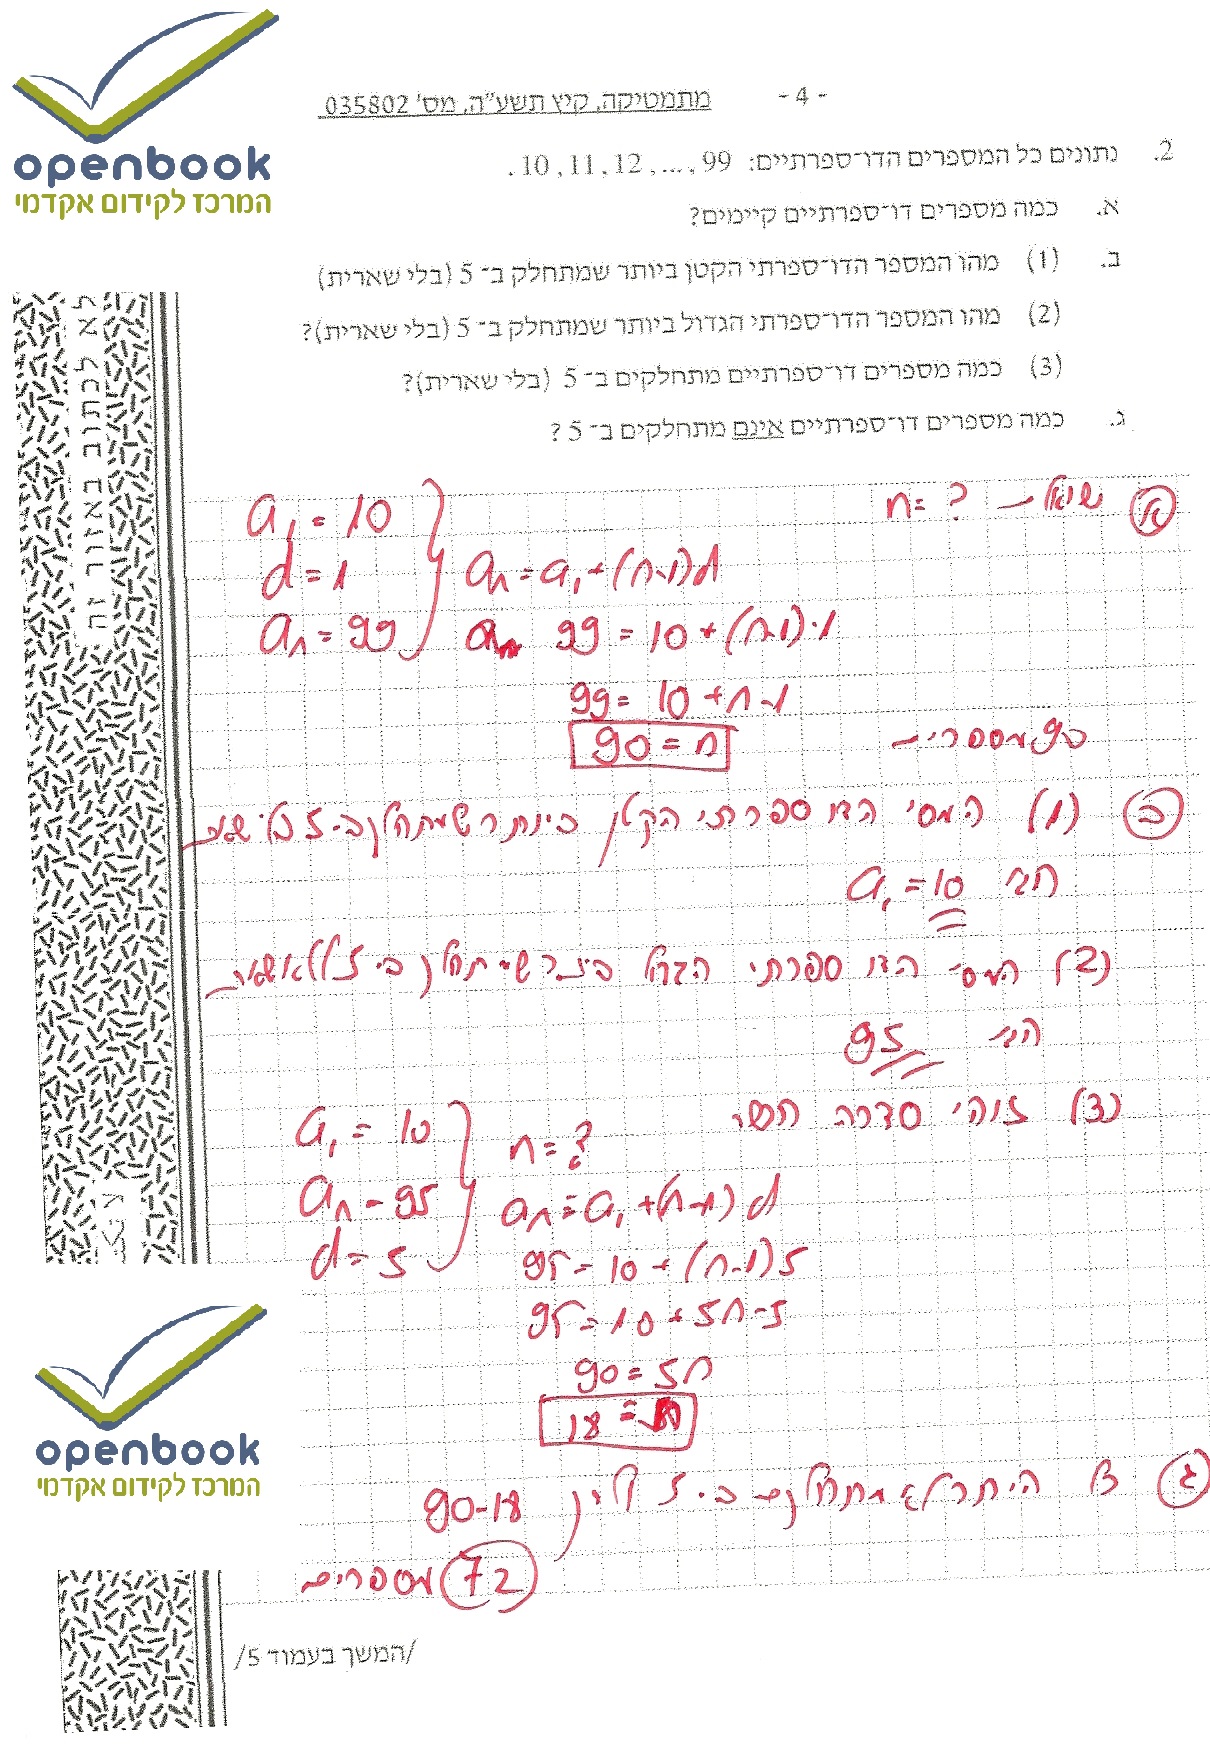 openbook
המרכז לקידום אקדמי
- 4 -
מתמטיקה, קיץ תשע"ה, מס' 035802
2. נתונים כל המספרים הדו־ספרתיים: 10 , 11 , 12 , ... , 99 .
א. כמה מספרים דו־ספרתיים קיימים?
ב. (1) מהו המספר הדו־ספרתי הקטן ביותר שמתחלק ב־ 5 (בלי שארית)
(2) מהו המספר הדו־ספרתי הגדול ביותר שמתחלק ב־ 5 (בלי שארית)?
(3) כמה מספרים דו־ספרתיים מתחלקים ב־ 5 (בלי שארית)?
ג. כמה מספרים דו־ספרתיים אינם מתחלקים ב־ 5 ?
לא לכתוב באזור זה
א n = ?
a₁ = 10
d = 1
aₙ = a₁ + (n-1)d
aₙ = 99
99 = 10 + (n-1)·1
99 = 10 + n - 1
90 = n
מספרים
ב (1) המס' הדו ספרתי הקטן ביותר שמתחלק ב-5 בלי
a₁ = 10
(2) המס' הדו ספרתי הגדול שמתחלק ב-5 ללא
95
(3) זוהי סדרה חש'
a₁ = 10
n = ?
aₙ = 95
aₙ = a₁ + (n-1)d
d = 5
95 = 10 + (n-1)5
95 = 10 + 5n - 5
90 = 5n
18 =
ג כל היתר לא מתחלקים ב-5 לכן 90-18
72 מספרים
openbook
המרכז לקידום אקדמי
/המשך בעמוד 5/